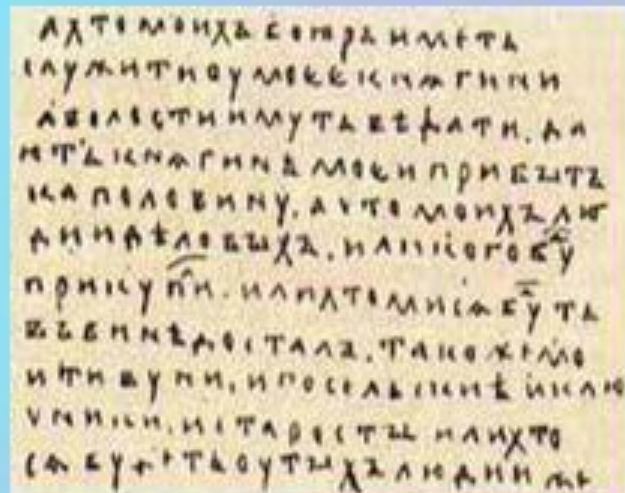 ахтомоихъ боꙗръ иметь
служитиоумоеекнѧгини
аволостиимутьвѣдати. да
ютькнѧгинѣмоеиприбытъ
каполовину. ачтомоихълю
диидѣловыхъ. иликогобуⷣ
прикупⷧи. илихтомисѧбуⷣть
въвинѣдосталъ. такожемо
итивуни. ипосельскиѣиклю
чники. истаросты илихто
сѧбудетьоутыхълюдии же